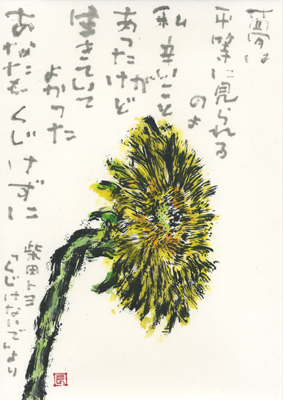 夢は
平等に見られる
のよ
私 辛いこと
が
あったけど
生きていて
よかった
あなたもくじけずに
柴田トヨ
「くじけないで」より